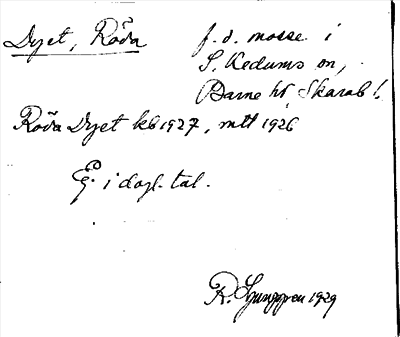 Dyet, Röda f. d. mosse i
S. Kedums sn,
Barne hd, Skarab. l.
Röda Dyet kb 1927, mtt 1926
Ej i dagl. tal.
R. Ljunggren 1929